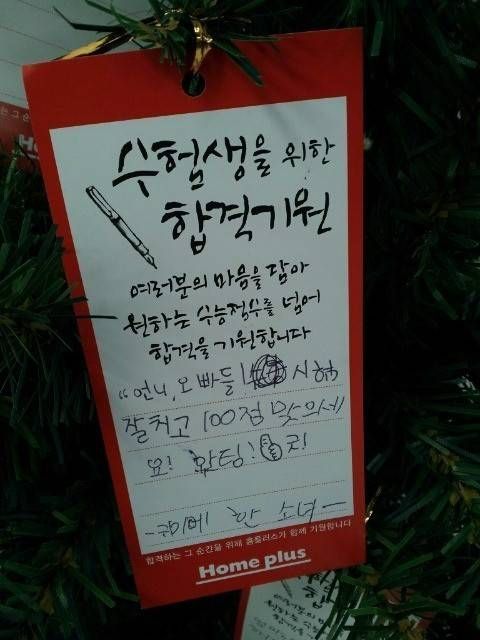 수험생을 위한
합격기원
여러분의 마음을 담아
원하는 수능점수를 넘어
합격을 기원합니다
"언니, 오빠들 시험
잘치고 100점 맞으세
요! 화팅! 굿!
한 소녀ㅡ
합격하는 그 순간을 위해 홈플러스가 함께 기원합니다
Home plus